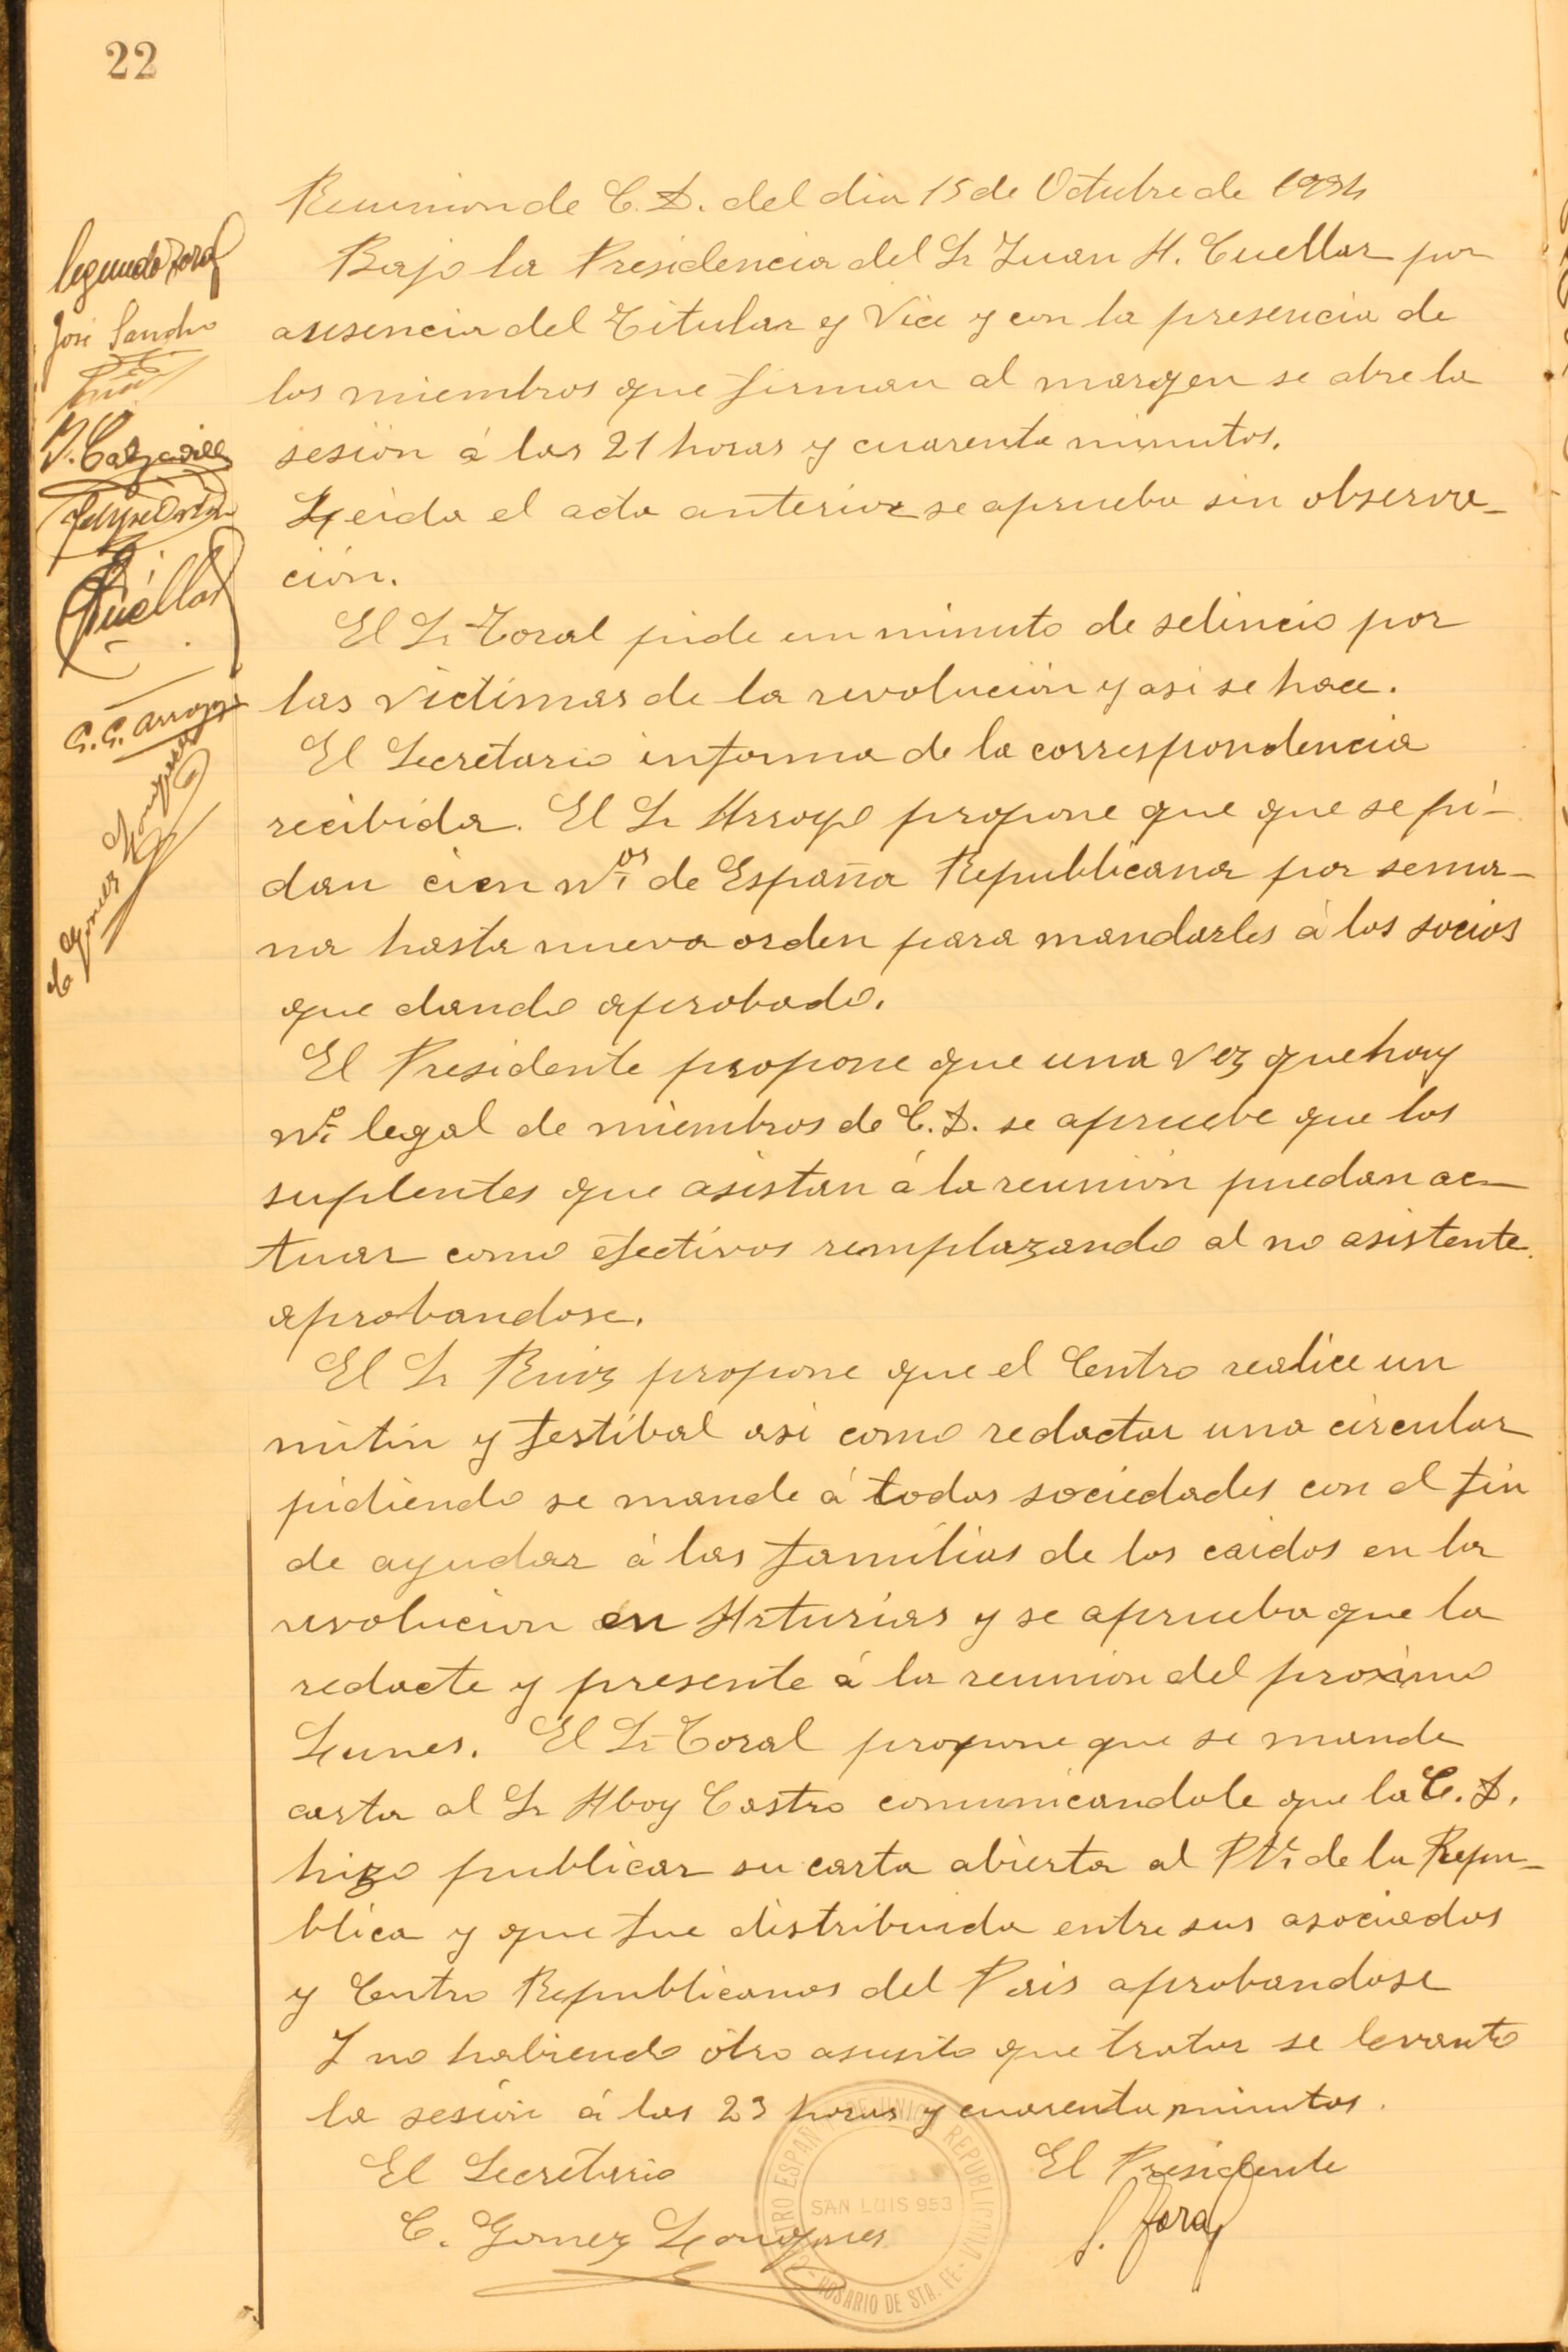 22
Reunion de C. D. del dia 15 de Octubre de 1934
Bajo la Presidencia del Sr Juan A. Cuellar por
asusencia del Titular y Vice y con la presencia de
los miembros que firman al margen se abre la
sesión á las 21 horas y cuarenta minutos.
Leida el acta anterior se aprueba sin observa-
ción.
El Sr Toral pide un minuto de selincio por
las victimas de la revolución y asi se hace.
El Secretario informa de la correspondencia
recibida. El Sr Arroyo propone que que se pi-
dan cien Nos de España Republicana por sema-
na hasta nueva orden para mandarles á los socios
que dando aprobado.
El Presidente propone que una vez que hay
No legal de miembros de C. D. se apruebe que los
suplentes que asistan á la reunión puedan ac-
tuar como efectivos remplazando al no asistente
aprobandose.
El Sr Ruiz propone que el Centro realice un
mitin y festibal asi como redactar una circular
pidiendo se mande á todas sociedades con el fin
de ayudar á las familias de los caidos en la
revolucion en Asturias y se aprueba que la
redacte y presente á la reunion del proximo
Lunes. El Sr Toral propone que se mande
carta al Sr Aboy Castro comunicandole que la C. D.
hizo publicar su carta abierta al Pte de la Repu-
blica y que fue distribuida entre sus asociados
y Centro Republicanos del Pais aprobandose
Y no habiendo otro asusnto que tratar se levanto
la sesión á las 23 horas y cuarenta minutos.
El Secretario El Presidente
C. Gomez Longares S. Toral
Segundo Toral
José Sancho
Felipe Ortin
Cuéllar
G. G. Arroyo
C Gomez Longares
CENTRO ESPAÑOL DE UNION REPUBLICANA
SAN LUIS 953
ROSARIO DE STA. FE